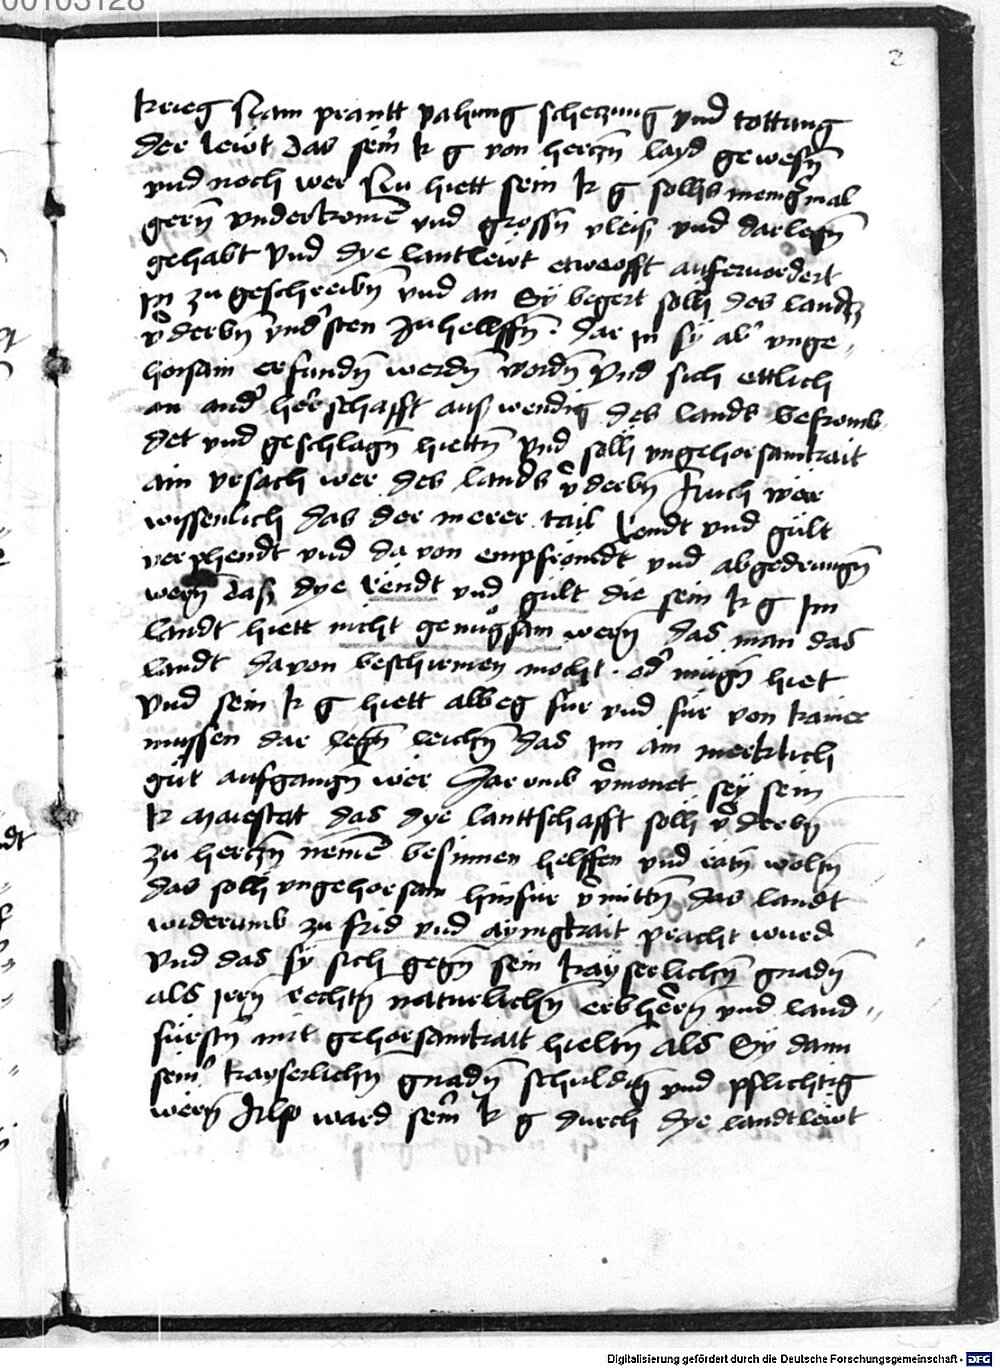 00103128
2
krieg Nam prantt vahung scheczung vnd tottung
der lewt das sein k g von herczn layd gewesn
vnd noch wer Nu hiett sein k g sollhs menigmal
gern vnderkomen vnd grossn vleis vnd darlegn
gehabt vnd dye lantlewt etwoofft aufervordert
in zu geschreibn vnd an Sy begert sollh des lands
vderbn vndsten zuhelffn dar In sy ab vnge„
horsam erfundn werdn wordn vnd sich ettlich
an and herschafft auswendig des lands befromb
det vnd geschlagn hiettn vnd sollh vngehorsamkait
ain vrsach wer des lands vderbn Auch wer
wissenlich das der merer tail Rendt vnd gült
verphendt vnd da von empfrömdt vnd abgedrungn
wern das dye Rendt vnd gült die sein k g Im
landt hiett nicht genugsam wern das man das
landt davon beschirmen mocht od mügn hiet
vnd sein k g hiett albeg für vnd für von kamer
mussen dar legn leichn das Im ain merklich
gut aufgangn wer Darumb vmonet sey sein
k Maiestat das dye lanttschafft sollh vderbn
zu herczn nemen besinnen helffen vnd ratn woltn
das sollh vngehorsam hinfur vmittn das landt
widerumb zu frid vnd aynigkait pracht wurd
vnd das sy sich gegn sein kayserlichn gnadn
als Irn rechtn naturlichn erbhern vnd land„
fürstn mit gehorsamkait hieltn als Sy dann
sein kayserlichn gnadn schuldig vnd pflichtig
wern Also ward sein k g durch dye landtlewt
Digitalisierung gefördert durch die Deutsche Forschungsgemeinschaft - DFG